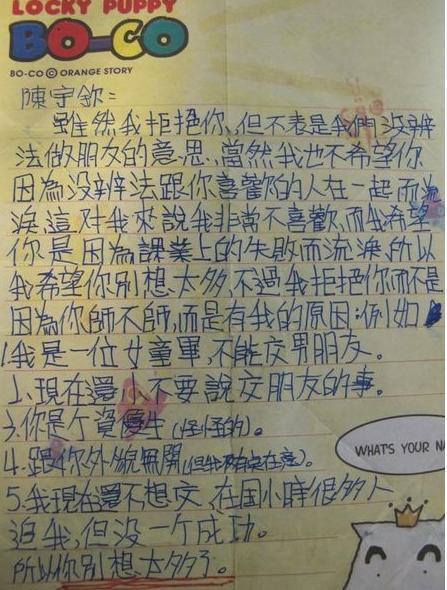 LOCKY PUPPY
BO-CO
BO-CO © ORANGE STORY
陳宇欽：
雖然我拒絕你、但不表是我們沒辦
法做朋友的意思、當然我也不希望你
因為沒辦法跟你喜歡的人在一起而流
淚這對我來說我非常不喜歡、而我希望
你是因為課業上的失敗而流淚、所以
我希望你別想太多、不過我拒絕你而不是
因為你師不師、而是有我的原因：例如
1.我是一位女童軍、不能交男朋友。
2.現在還小不要說交朋友的事。
3.你是个資優生(怪怪的)。
4.跟你外貌無關(但我有在意)。
5.我現在還不想交、在国小時很多人
追我、但没一个成功。
所以你別想太多了。
WHAT'S YOUR NA